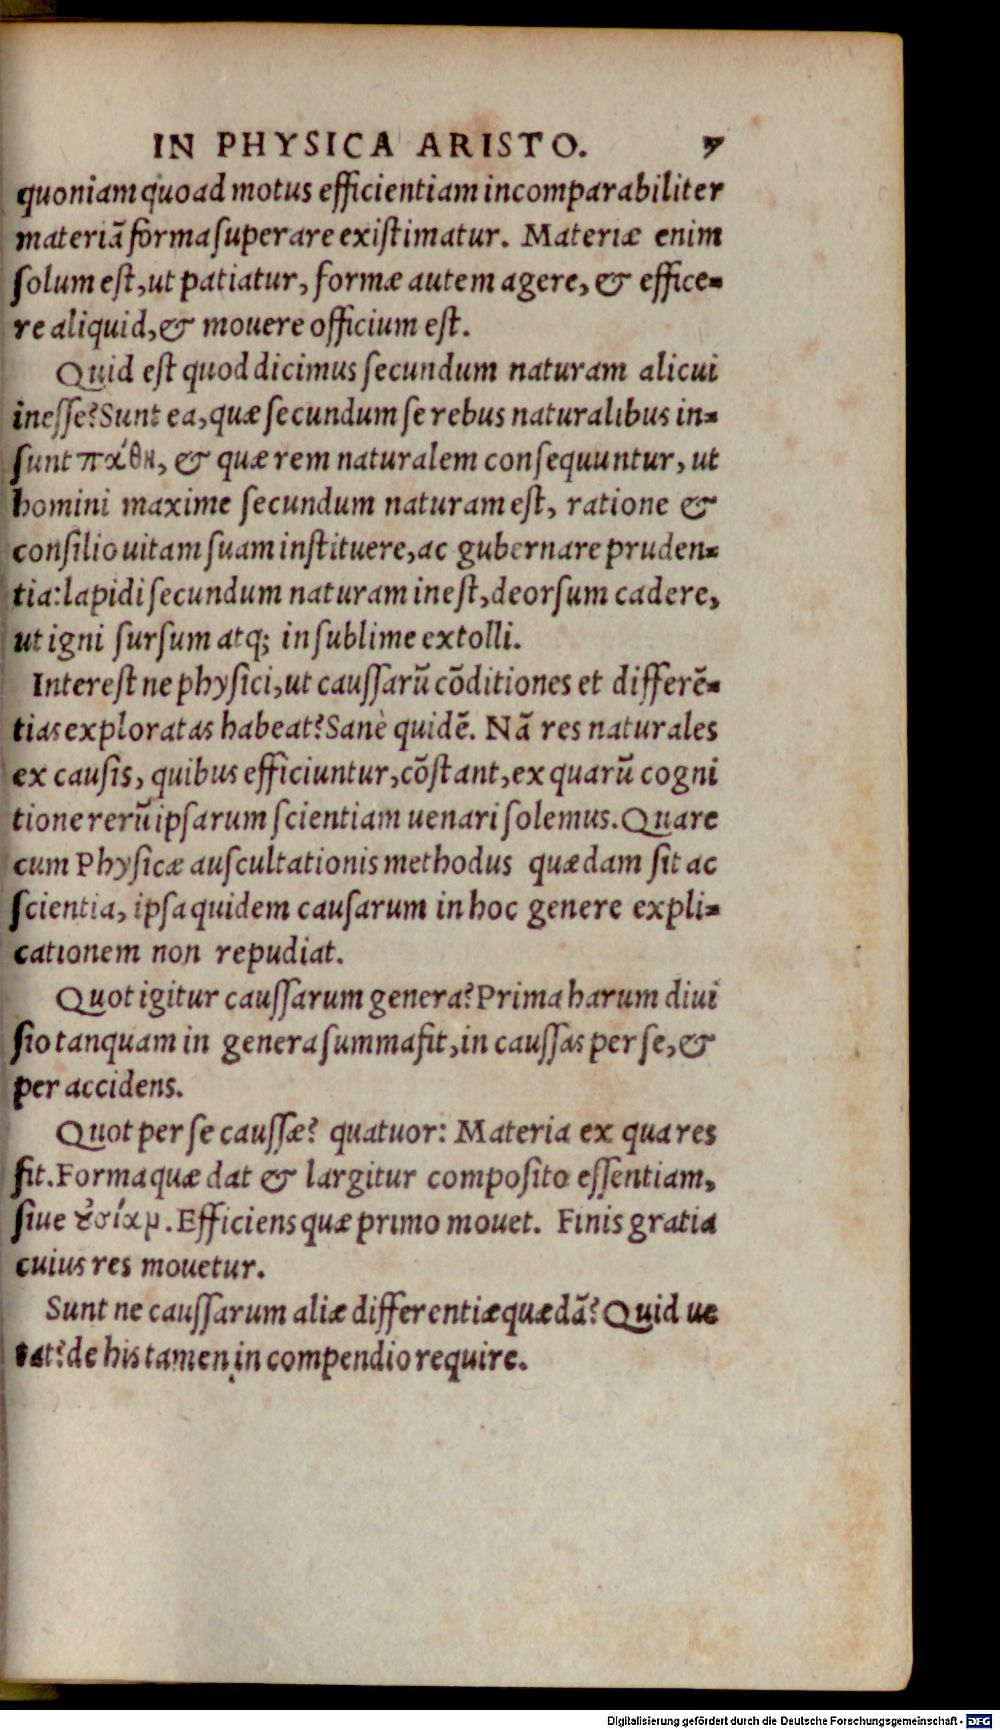 IN PHYSICA ARISTO. 7
quoniam quoad motus efficientiam incomparabiliter
materiã forma superare existimatur. Materiæ enim
solum est, ut patiatur, formæ autem agere, & effice-
re aliquid, & mouere officium est.
Quid est quod dicimus secundum naturam alicui
inesse? Sunt ea, quæ secundum se rebus naturalibus in-
sunt πάθη, & quæ rem naturalem consequuntur, ut
homini maxime secundum naturam est, ratione &
consilio uitam suam instituere, ac gubernare pruden-
tia: lapidi secundum naturam inest, deorsum cadere,
ut igni sursum atq; in sublime extolli.
Interest ne physici, ut caussarũ cõditiones et differẽ-
tias exploratas habeat? Sanè quidẽ. Nã res naturales
ex causis, quibus efficiuntur, cõstant, ex quarũ cogni
tione rerũ ipsarum scientiam uenari solemus. Quare
cum Physicæ auscultationis methodus quædam sit ac
scientia, ipsa quidem causarum in hoc genere expli-
cationem non repudiat.
Quot igitur caussarum genera? Prima harum diui
sio tanquam in genera summa fit, in caussas per se, &
per accidens.
Quot per se caussæ? quatuor: Materia ex qua res
fit. Forma quæ dat & largitur composito essentiam,
siue ȣ̓σίαμ. Efficiens quæ primo mouet. Finis gratia
cuius res mouetur.
Sunt ne caussarum aliæ differentiæ quædã? Quid ue
tat? de his tamen in compendio require.
Digitalisierung gefördert durch die Deutsche Forschungsgemeinschaft - DFG